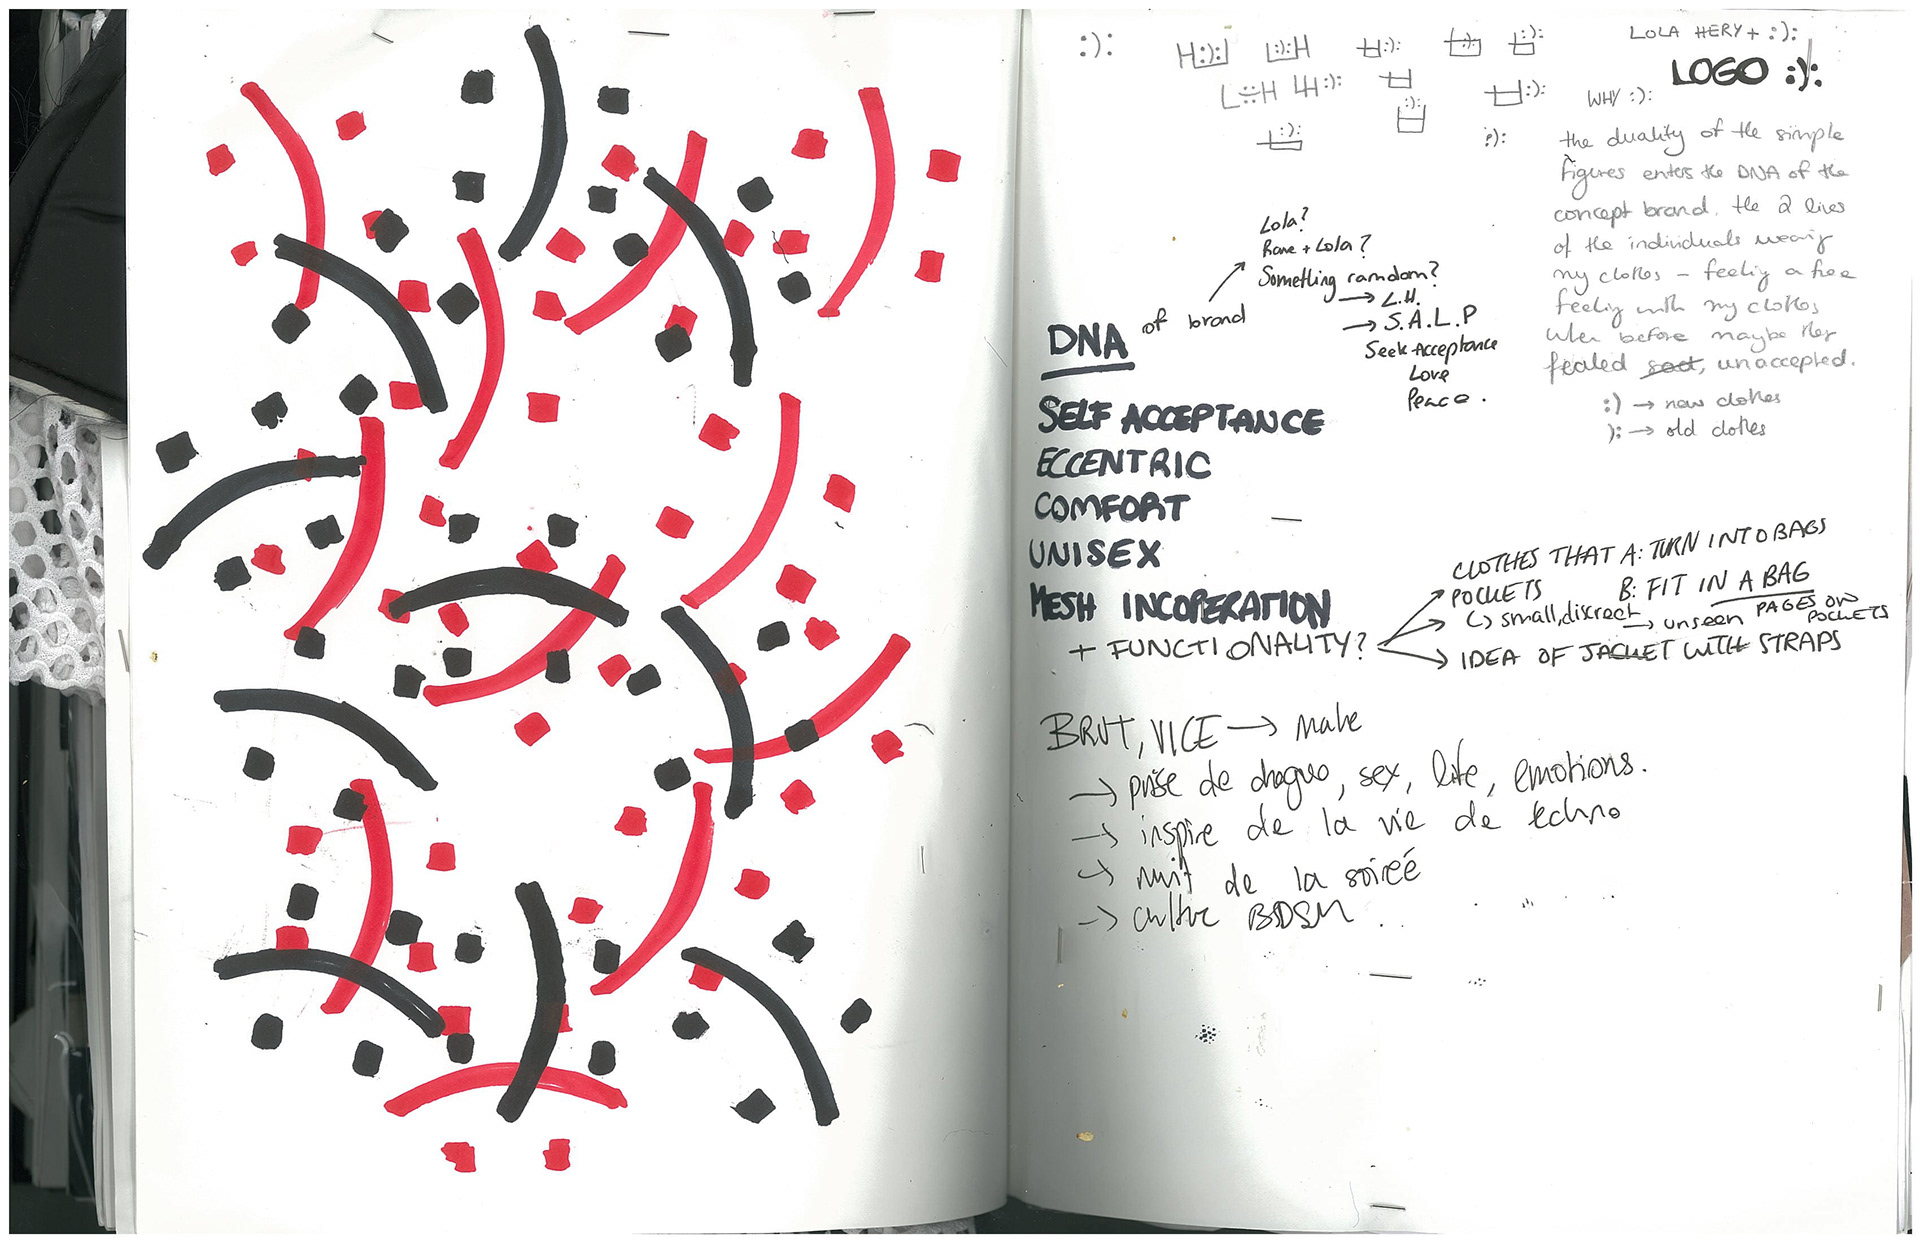 :):
LOLA HERY + :):
LOGO :):
WHY :):
the duality of the simple
figures enters the DNA of the
concept brand. the 2 lives
of the individuals wearing
my clothes - feeling a free
feeling with my clothes
when before maybe they
fealed sad, unaccepted.
:) → new clothes
): → old clothes
Lola?
Rone + Lola?
Something random?
→ L.H.
→ S.A.L.P
Seek Acceptance
Love
Peace.
DNA of brand
SELF ACCEPTANCE
ECCENTRIC
COMFORT
UNISEX
MESH INCOPERATION
+ FUNCTIONALITY?
CLOTHES THAT A: TURN INTO BAGS
B: FIT IN A BAG
POCKETS
↳ small, discrect → unseen
PAGES ON
POCKETS
IDEA OF JACKET WITH STRAPS
BRUT, VICE → make
→ prise de drogue, sex, life, emotions.
→ inspire de la vie de techno
→ nuit de la soireé
→ culture BDSM.